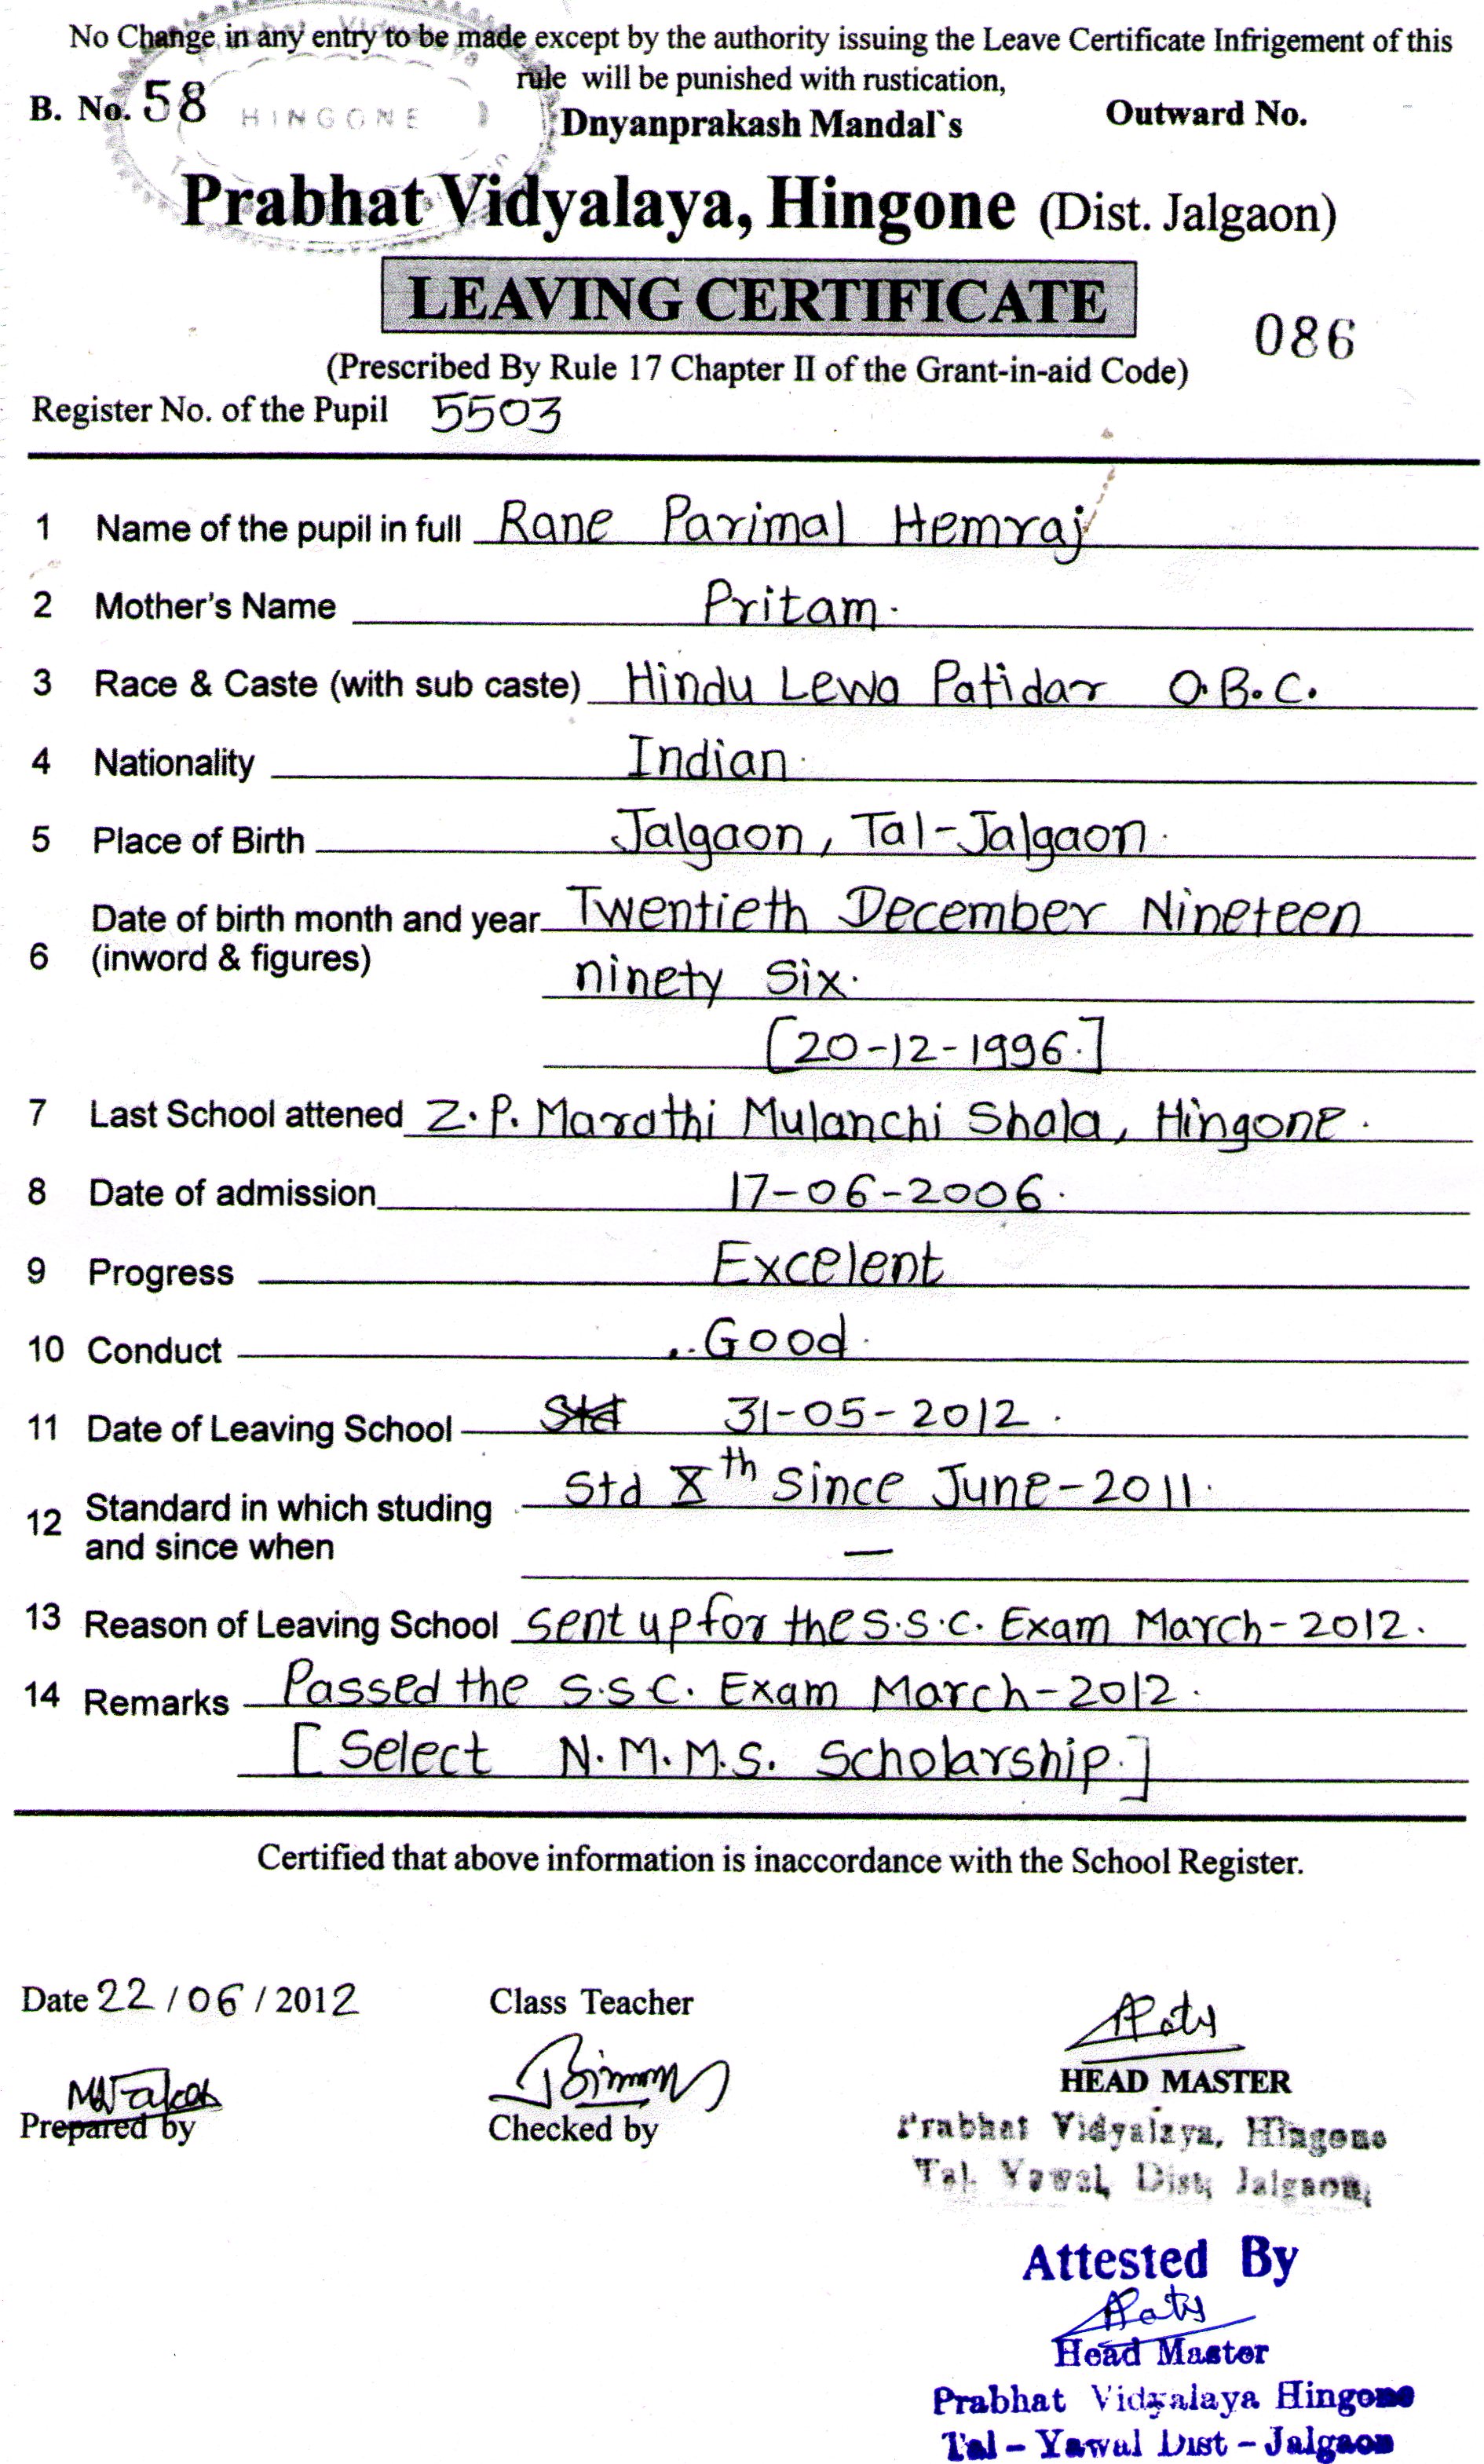 No Change in any entry to be made except by the authority issuing the Leave Certificate Infrigement of this
rule will be punished with rustication,
B. No. 58 HINGONE Dnyanprakash Mandal`s Outward No.
Prabhat Vidyalaya, Hingone (Dist. Jalgaon)
LEAVING CERTIFICATE
086
(Prescribed By Rule 17 Chapter II of the Grant-in-aid Code)
Register No. of the Pupil 5503
1 Name of the pupil in full Rane Parimal Hemraj
2 Mother's Name Pritam.
3 Race & Caste (with sub caste) Hindu Lewa Patidar O.B.C.
4 Nationality Indian.
5 Place of Birth Jalgaon, Tal-Jalgaon.
Date of birth month and year Twentieth December Nineteen
6 (inword & figures) ninety Six.
[20-12-1996.]
7 Last School attened Z.P. Marathi Mulanchi Shala, Hingone.
8 Date of admission 17-06-2006.
9 Progress Excelent
10 Conduct ..Good.
11 Date of Leaving School Std 31-05-2012.
12 Standard in which studing Std Xth Since June-2011.
and since when —
13 Reason of Leaving School sent up for the S.S.C. Exam March-2012.
14 Remarks Passed the S.S.C. Exam March-2012.
[Select N.M.M.S. Scholarship.]
Certified that above information is inaccordance with the School Register.
Date 22/06/2012 Class Teacher
HEAD MASTER
Prepared by Checked by
Prabhat Vidyalaya, Hingone
Tal. Yawal, Dist; Jalgaon,
Attested By
Head Master
Prabhat Vidyalaya Hingone
Tal - Yawal Dist - Jalgaon